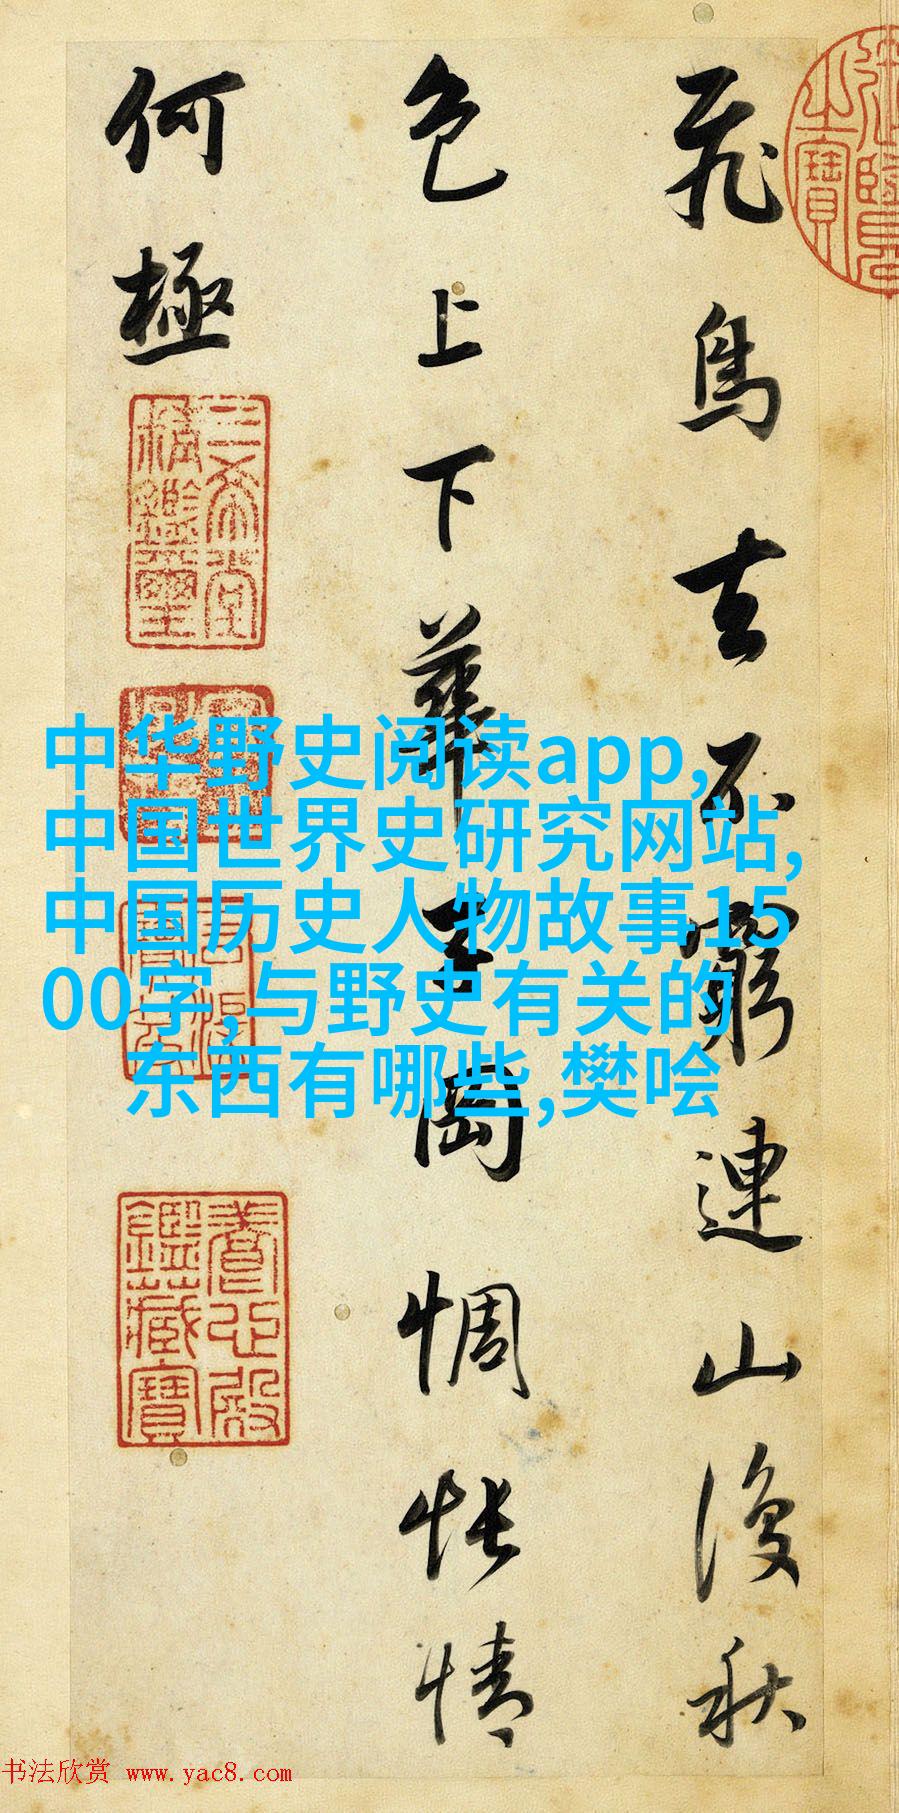 飛鳥去不窮連山復秋
色上下華子岡惆悵情
何極
三希堂精鑑璽
養心殿鑑藏寶
中华野史阅读app,
中国世界史研究网站,
中国历史人物故事15
00字,与野史有关的
东西有哪些,樊哙
书法欣赏 www.yac8.com